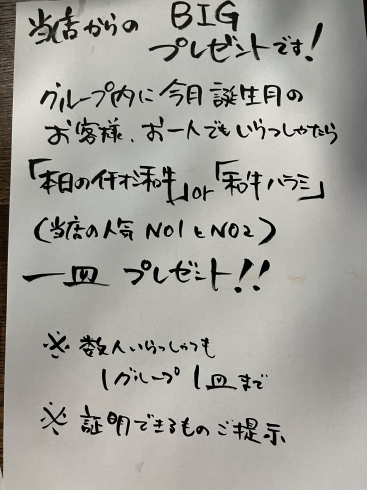 当店からの BIG
プレゼントです!
グループ内に今月誕生月の
お客様、お一人でもいらっしゃたら
「本日のイチオシ和牛」or「和牛ハラミ」
(当店の人気 NO1 と NO2)
一皿 プレゼント!!
※ 数人いらっしゃっても
1グループ 1皿まで
※ 証明できるものご提示